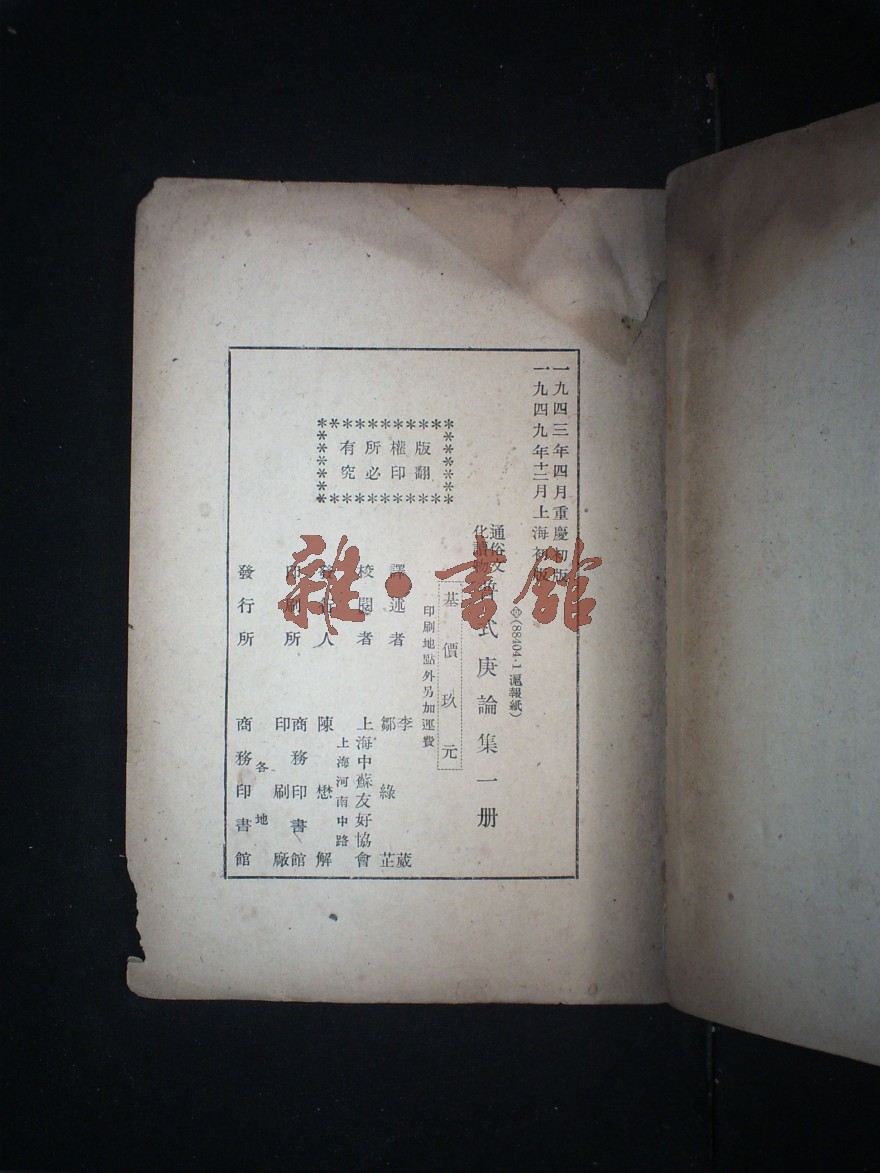 一九四三年四月重慶初版
一九四九年十二月上海初版
(88404·1滬報紙)
通俗文
化讀物
式庚論集一册
基價玖元
印刷地點外另加運費
版權所有
翻印必究
譯述者 李葳
鄒綠芷
校閱者 上海中蘇友好協會
上海河南中路
發行人 陳懋解
印刷所 商務印書館
印刷廠
各地
發行所 商務印書館
雜·書館